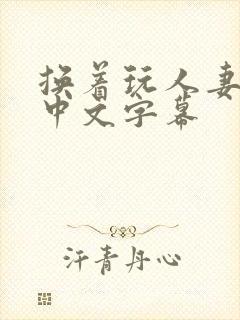 换着玩人妻
中文字幕
汗青丹心